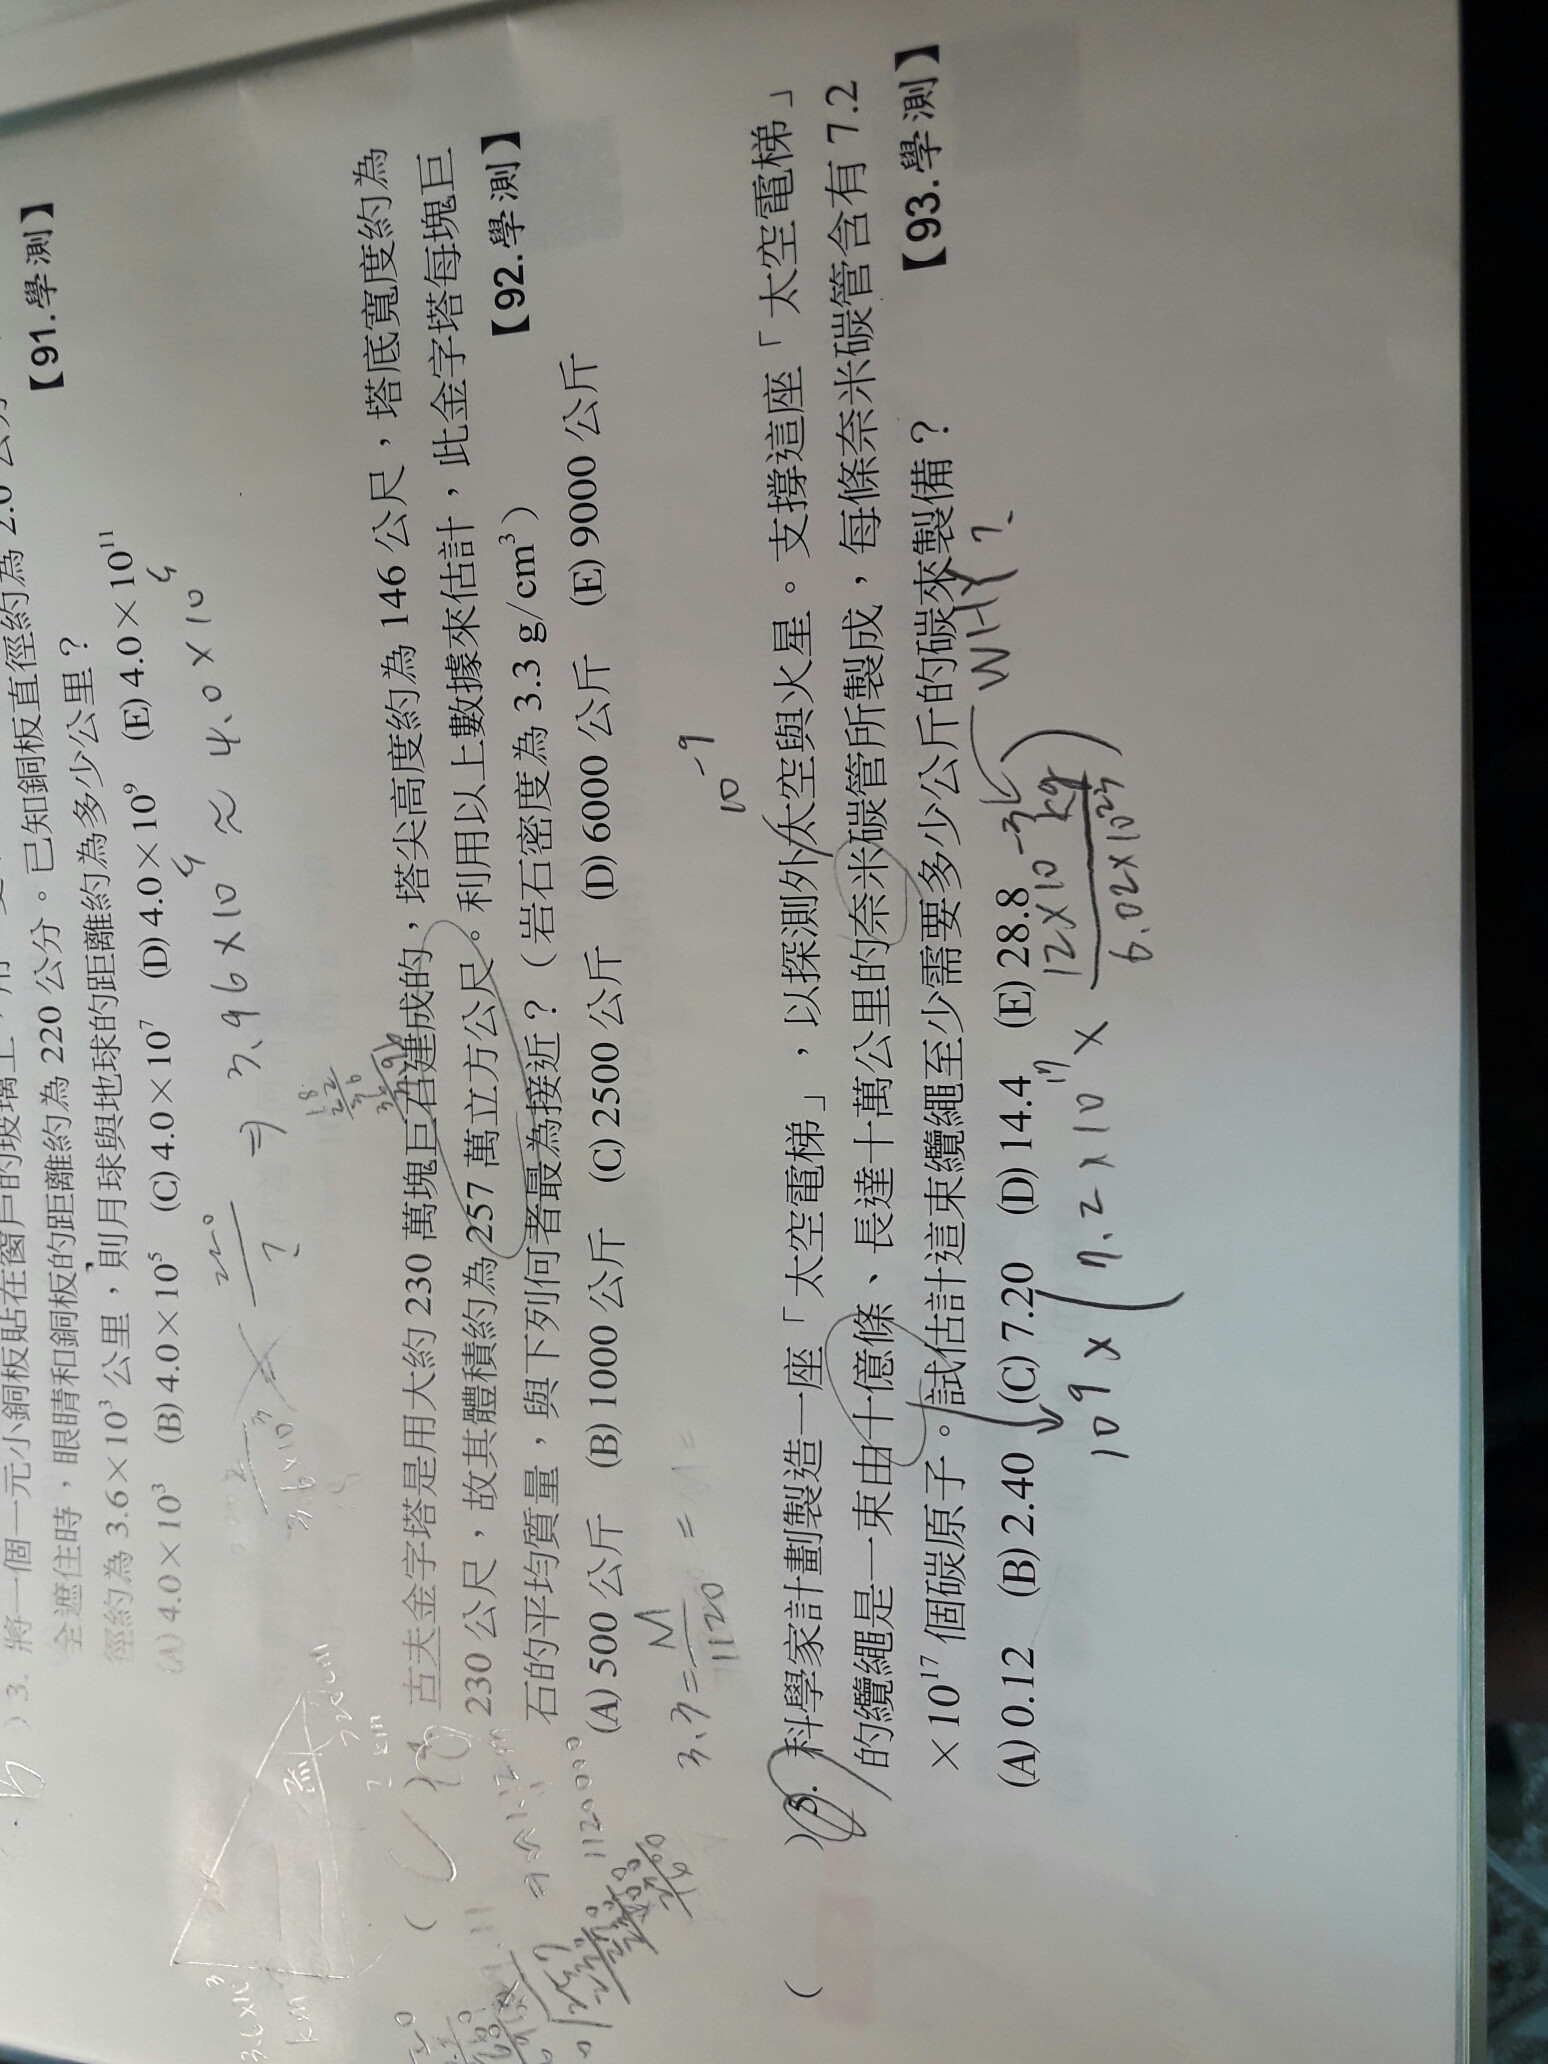 【91.學測】
) 3. 將一個一元小銅板貼在窗戶的玻璃上
全遮住時，眼睛和銅板的距離約為 220 公分。已知銅板直徑約為 2.0 公分
徑約為 3.6×10³ 公里，則月球與地球的距離約為多少公里？
(A) 4.0×10³ (B) 4.0×10⁵ (C) 4.0×10⁷ (D) 4.0×10⁹ (E) 4.0×10¹¹
⇒ 3.96×10⁵ ≈ 4.0×10⁵
220
?
3.6×10³
km
220cm
? km
古夫金字塔是用大約 230 萬塊巨石建成的，塔尖高度約為 146 公尺，塔底寬度約為
230 公尺，故其體積約為 257 萬立方公尺。利用以上數據來估計，此金字塔每塊巨
石的平均質量，與下列何者最為接近？（岩石密度為 3.3 g/cm³）
【92.學測】
(A) 500 公斤 (B) 1000 公斤 (C) 2500 公斤 (D) 6000 公斤 (E) 9000 公斤
1120000
3.3 = M/1120 =
10⁻⁹
( ) 5. 科學家計劃製造一座「太空電梯」，以探測外太空與火星。支撐這座「太空電梯」
的纜繩是一束由十億條、長達十萬公里的奈米碳管所製成，每條奈米碳管含有 7.2
×10¹⁷ 個碳原子。試估計這束纜繩至少需要多少公斤的碳來製備？
【93.學測】
(A) 0.12 (B) 2.40 (C) 7.20 (D) 14.4 (E) 28.8
WHY?
10⁹ × (7.2×10¹⁷ × 12×10⁻³ kg / 6.02×10²³)